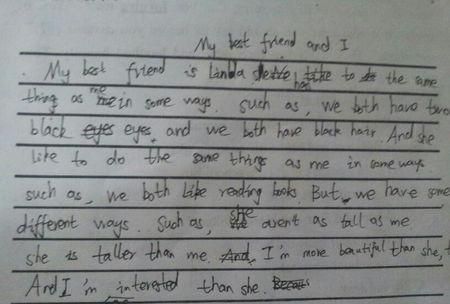 My best friend and I
My best friend is Linda. She has to the same
thing as me in some ways. such as, we both have two
black eyes, and we both have black hair. And she
like to do the same things as me in some ways
such as, we both like reading books. But, we have some
different ways. Such as, she aren't as tall as me
she is taller than me. I'm more beautiful than she,
And I'm interested than she.